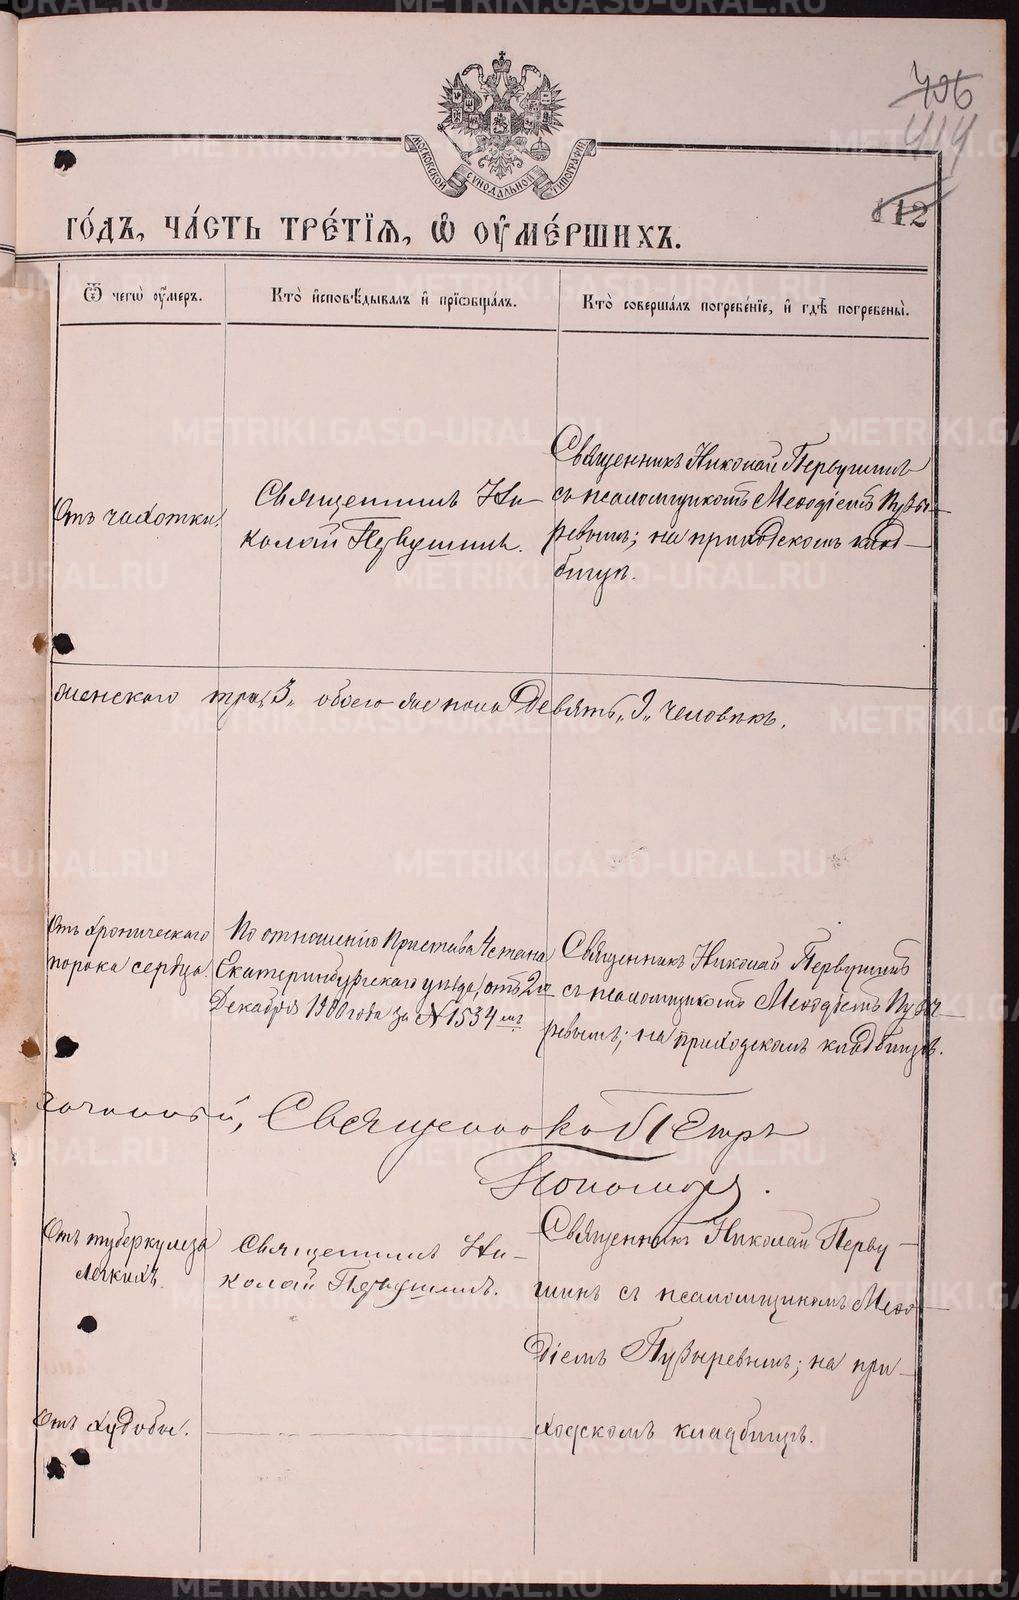 406
414
112
МОСКОВСКОЙ СѴНОДАЛЬНОЙ ТИПОГРАФІИ
ГО́ДЪ, ЧА́СТЬ ТРЕ́ТЇѦ, Ѡ҆ ОУ҆МЕ́РШИХЪ.
Ѿ чегѡ̀ оу҆́меръ.
Кто̀ и҆сповѣ́дывалъ и҆ прїѡбща́лъ.
Кто̀ соверша́лъ погребе́нїе, и҆ гдѣ̀ погребены̀.
Отъ чахотки.
Священникъ Ни-
колай Первушинъ.
Священникъ Николай Первушинъ
съ псаломщикомъ Меѳодіемъ Пузы-
ревымъ; на приходскомъ клад-
бищѣ.
женскаго три „3„ обоего же пола Девять „9„ человѣкъ.
Отъ хроническаго
порока сердца.
По отношенію Пристава 4 стана
Екатеринбургскаго уѣзда, отъ 2го
Декабря 1900 года за № 1534мъ
Священникъ Николай Первушинъ
съ псаломщикомъ Меѳодіемъ Пузы-
ревымъ; на приходскомъ кладбищѣ.
Священникъ Петръ
Пономарев.
Отъ туберкулеза
легкихъ.
Священникъ Ни-
колай Первушинъ.
Священникъ Николай Перву-
шинъ съ псаломщикомъ Меѳо-
діемъ Пузыревымъ; на при-
Отъ худобы.
ходскомъ кладбищѣ.
METRIKI.GASO-URAL.RU